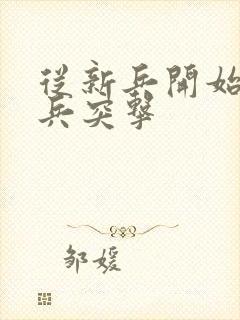 從新兵開始
兵突擊
邹媛